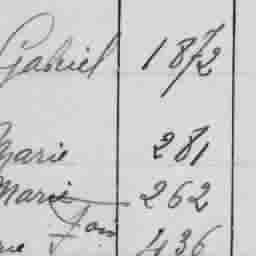 Gabriel 1872
Marie 281
Marie 262
Foin 436